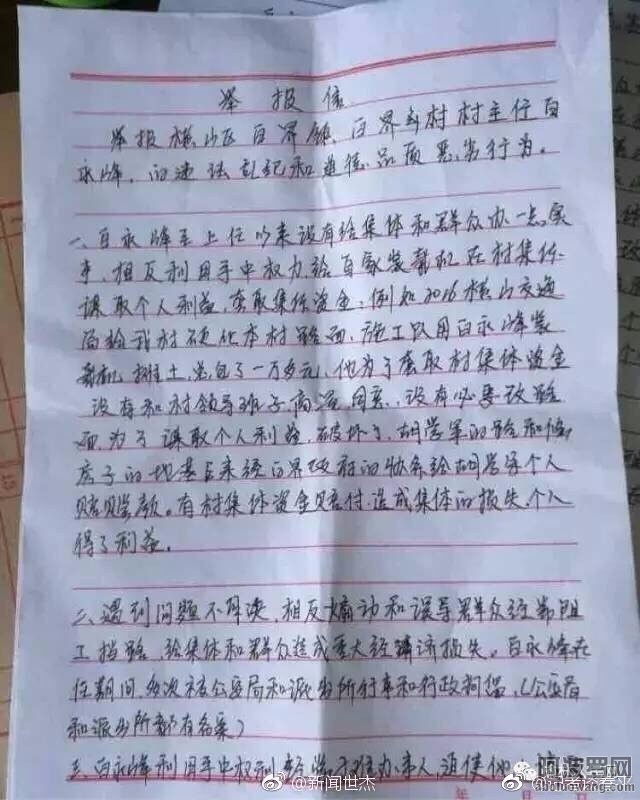 举报信
举报横山区百界镇、百界乡村村主任白
永峰,的违法乱纪和道德品质恶劣行为。
一、白永峰至上任以来没有给集体和群众办一点实
事,相反利用手中权力,给自家装载机在村集体
谋取个人利益,套取集体资金,例如2016横山交通
局给我村硬化本村路面,施工队用白永峰装
载机推土,总包了一万多元,他为了套取村集体资金
没有和村领导班子商议同意,没有必要改路
面,为了谋取个人利益,破坏了,胡学军的路和修
房子的地基后来经百界政府的协条给胡学军个人
赔偿款。有村集体资金赔付,造成集体的损失,个人
得了利益。
二、遇到问题不解决,相反煽动和误导群众经常阻
工挡路,给集体和群众造成重大经济损失。白永峰在
任期间,多次被公安局和派出所行事和行政拘留,(公安局
和派出所都有名案)
三、白永峰利用手中权利,经常不给办事人,迫使他
年 月 日
@新闻世杰
阿波罗网